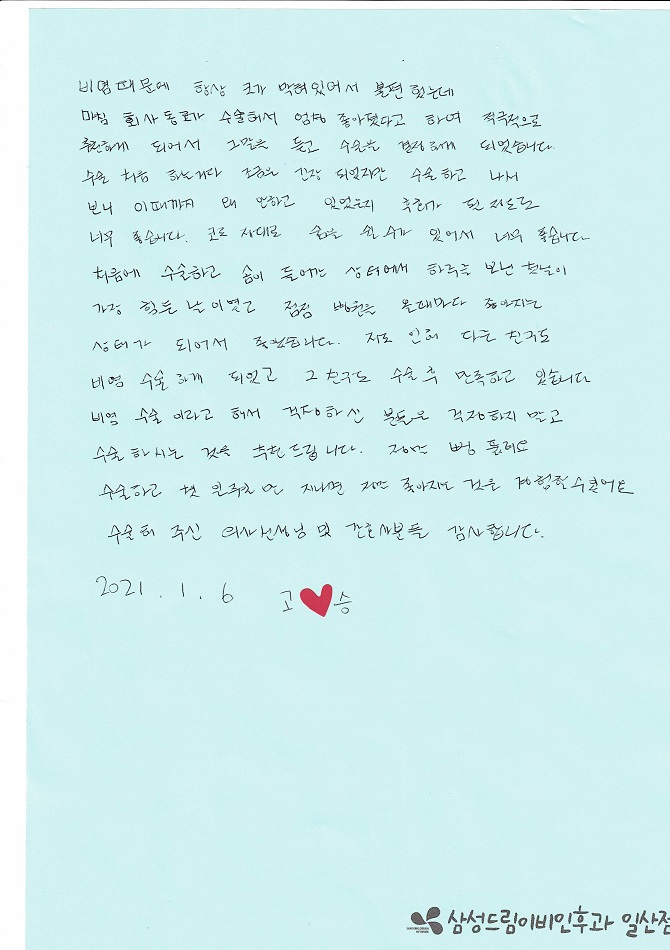 비염때문에 항상 코가 막혀있어서 불편 했는데
마침 회사동료가 수술해서 엄청 좋아졌다고 하며 적극적으로
추천하게 되어서 그말을 듣고 수술을 결정하게 되었습니다.
수술 처음 하는거다 조금은 긴장 되었지만 수술하고 나서
보니 이때까지 왜 안하고 있었는지 후회가 될 정도로
너무 좋습니다. 코로 제대로 숨을 쉴 수가 있어서 너무 좋습니다.
처음에 수술하고 솜이 들어간 상태에서 하루를 보낸 첫날이
가장 힘든 날이였고 점점 병원을 올때마다 좋아지는
상태가 되어서 추천합니다. 저로 인해 다른 친구도
비염 수술하게 되었고 그 친구도 수술 후 만족하고 있습니다
비염 수술 이라고 해서 걱정하신 분들은 걱정하지 말고
수술 하시는 것을 추천드립니다. 뻥 뚫려요
수술하고 첫 일주일만 지나면 점점 좋아지는 것을 경험할수있어요
수술해 주신 의사선생님 및 간호사분들 감사합니다.
2021. 1. 6 고 승
삼성드림이비인후과 일산점